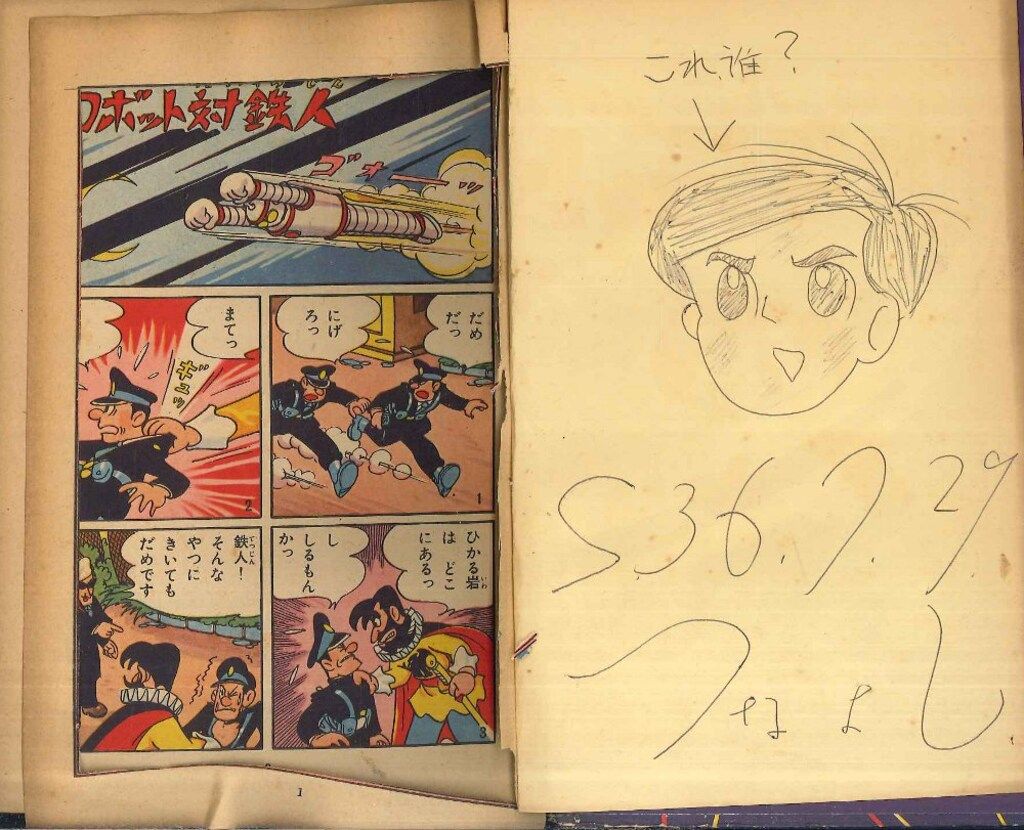 ロボット対鉄人
ゴォーッ
だめ
だっ
にげ
ろっ
1
まてっ
チュッ
2
ひかる岩
は どこ
にあるっ
し
しるもん
かっ
3
鉄人!
そんな
やつに
きいても
だめです
1
これ誰?
S.36.7.29.
つなよし